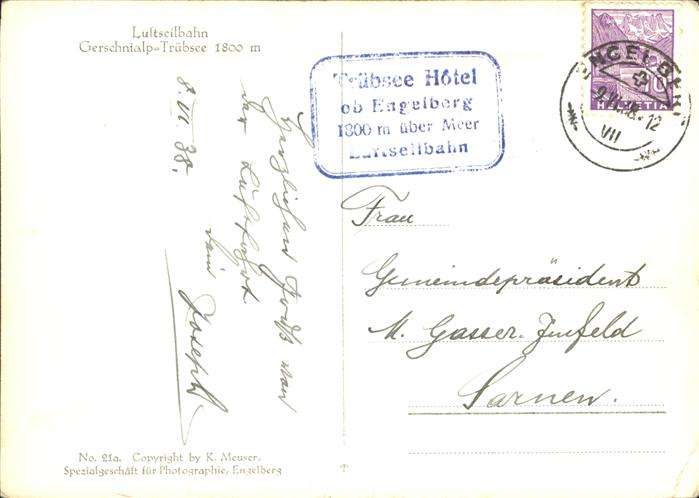 Luftseilbahn
Gerschnialp-Trübsee 1800 m
8. VI. 38.
Herzlichen Gruß von
der Luftfahrt
dein Joseph
Trübsee Hôtel
ob Engelberg
1800 m über Meer
Luftseilbahn
ENGELBERG
VII
HELVETIA
Frau
Gemeindepräsident
M. Gasser-Imfeld
Sarnen.
No. 21a. Copyright by K. Meuser,
Spezialgeschäft für Photographie, Engelberg